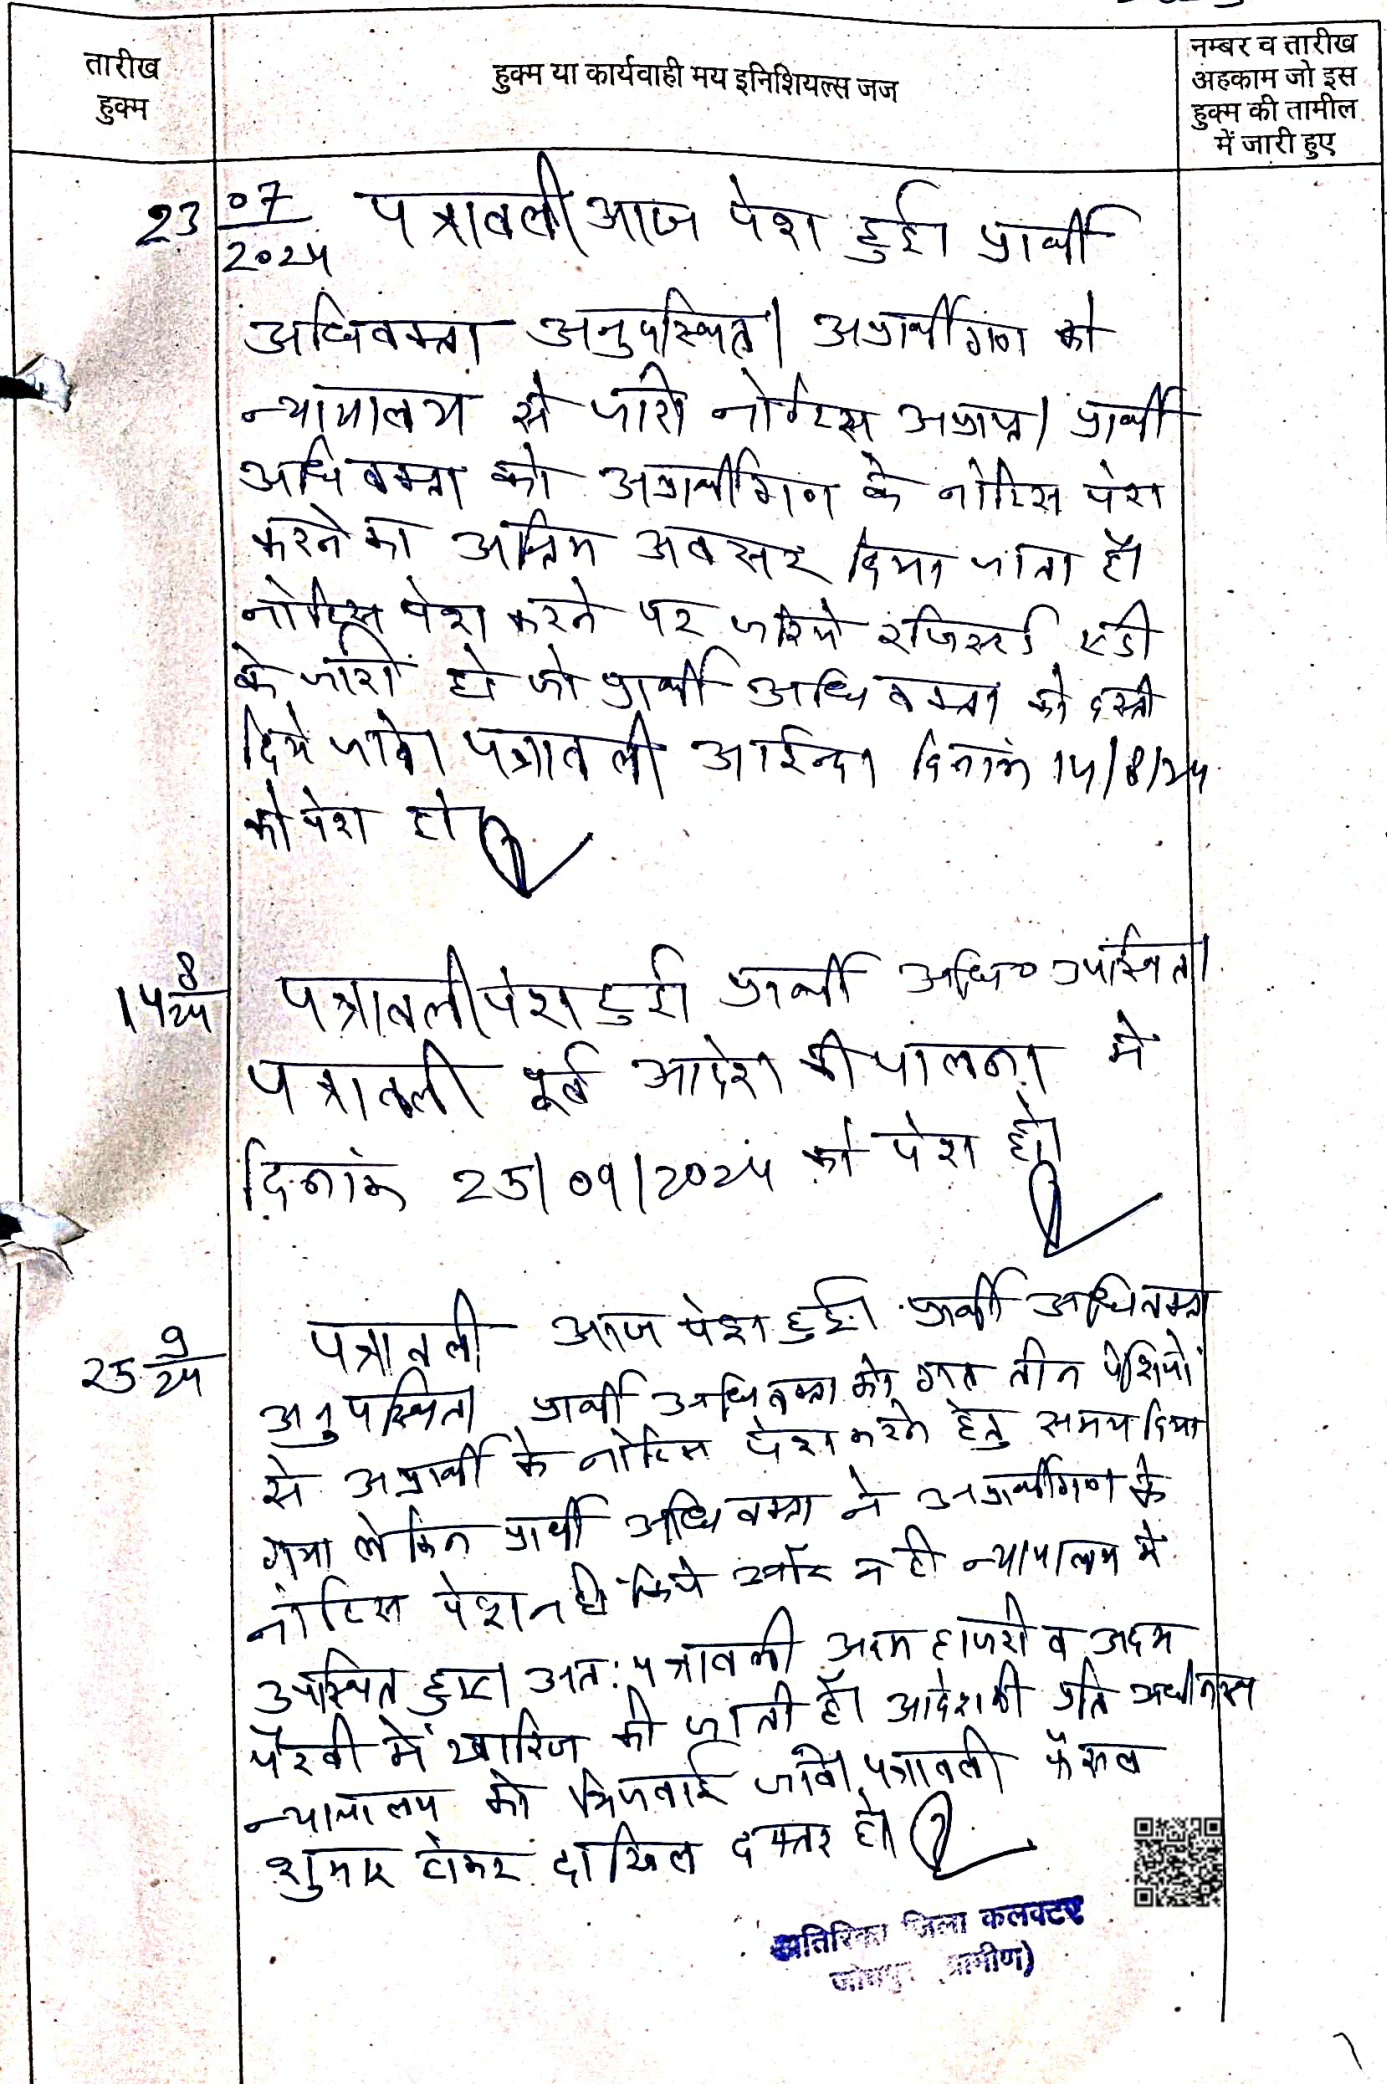 तारीख
हुक्म
हुक्म या कार्यवाही मय इनिशियल्स जज
नम्बर व तारीख
अहकाम जो इस
हुक्म की तामील
में जारी हुए
23 07/2024 पत्रावली आज पेश हुई। प्रार्थी
अधिवक्ता अनुपस्थित। अप्रार्थीगण को
न्यायालय से जारी नोटिस अप्राप्त। प्रार्थी
अधिवक्ता को अप्रार्थीगण के नोटिस पेश
करने का अन्तिम अवसर दिया जाता है।
नोटिस पेश करने पर जरिये रजिस्टर्ड एडी
के जारी हो जो प्रार्थी अधिवक्ता को दस्ती
दिये जावे। पत्रावली आईन्दा दिनांक 14/8/24
को पेश हो।
14 8/24 पत्रावली पेश हुई। प्रार्थी अधि० उपस्थित।
पत्रावली पूर्व आदेश की पालना में
दिनांक 25/09/2024 को पेश हो।
25 9/24 पत्रावली आज पेश हुई। प्रार्थी अधिवक्ता
अनुपस्थित। प्रार्थी अधिवक्ता को गत तीन पेशियों
से अप्रार्थी के नोटिस पेश करने हेतु समय दिया
गया लेकिन प्रार्थी अधिवक्ता ने अप्रार्थीगण के
नोटिस पेश नही किये और न ही न्यायालय में
उपस्थित हुए। अत: पत्रावली अदम हाजरी व अदम
पैरवी में खारिज की जाती है। आदेश की प्रति अधीनस्थ
न्यायालय को भिजवाई जावे। पत्रावली फैसल
शुमार होकर दाखिल दफ्तर हो।
अतिरिक्त जिला कलक्टर
जोधपुर (ग्रामीण)